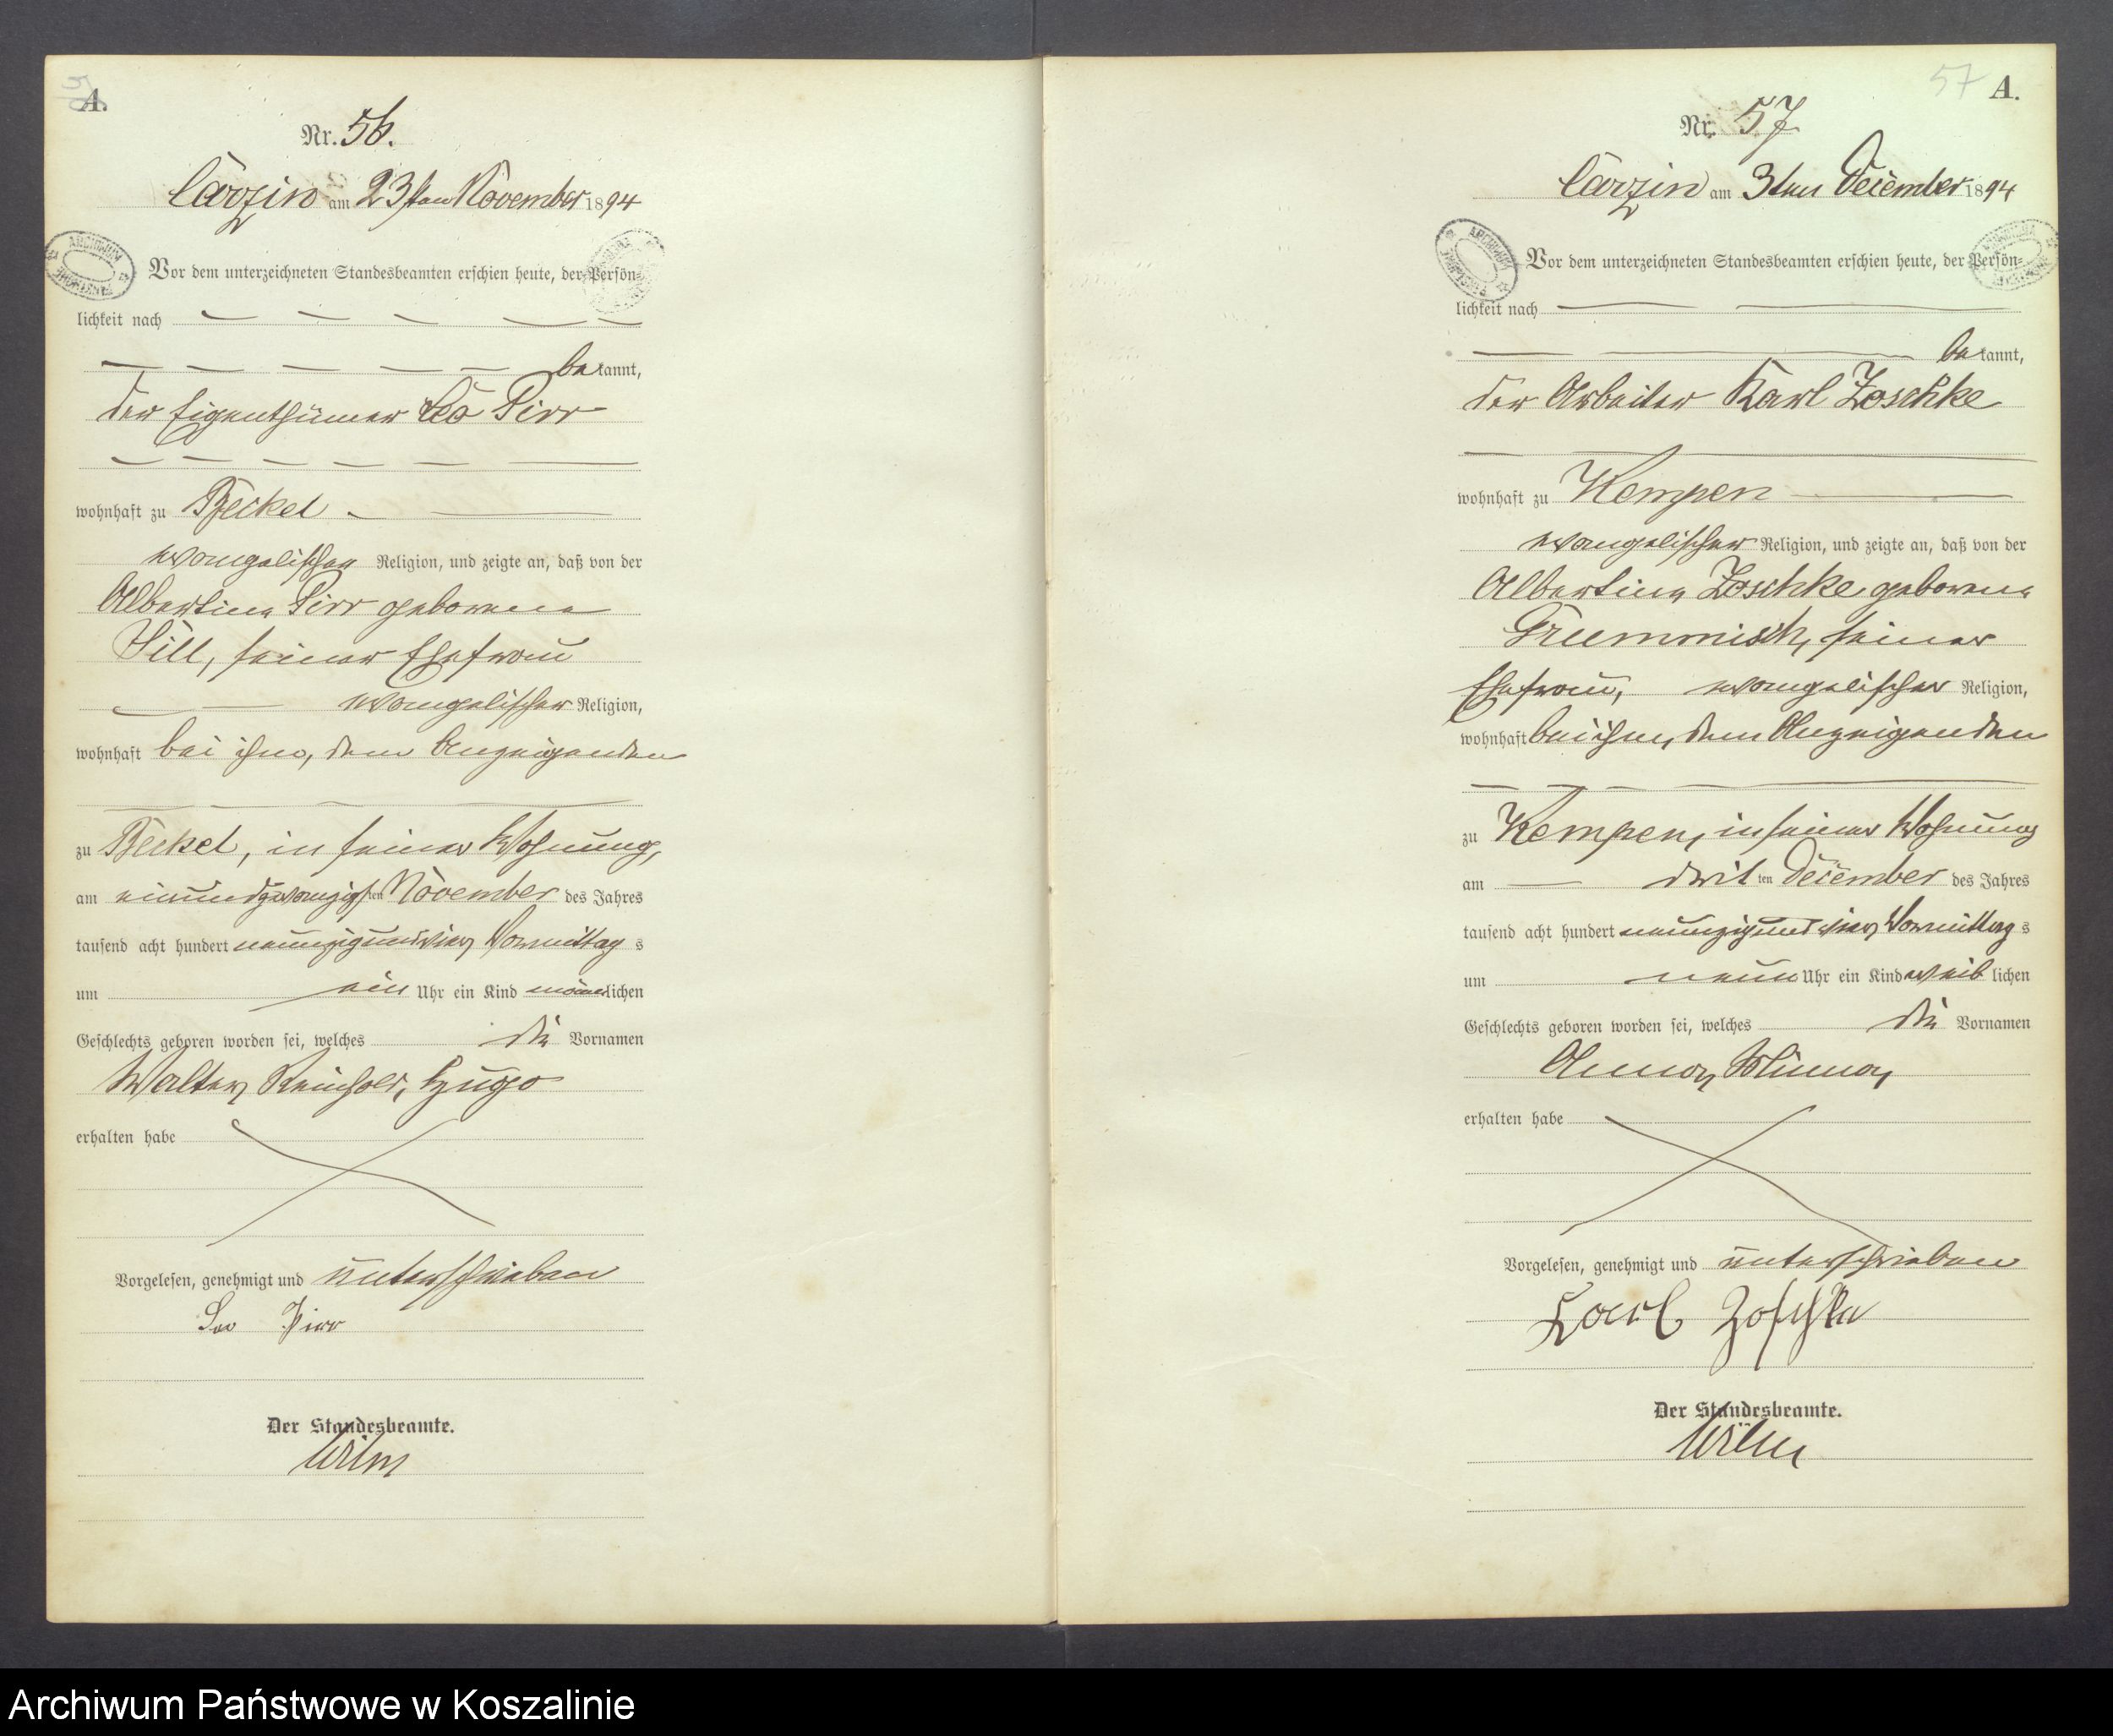 A.
Nr. 56.
Carzin am 23sten November 1894
Vor dem unterzeichneten Standesbeamten erschien heute, der Persön-
lichkeit nach
bekannt,
der Eigenthümer Leo Pirr
wohnhaft zu Beckel
evangelischer Religion, und zeigte an, daß von der
Albertine Pirr geborene
Sill, seiner Ehefrau
evangelischer Religion,
wohnhaft bei ihm, dem Anzeigenden
zu Beckel, in seiner Wohnung,
am einundzwanzigsten November des Jahres
tausend acht hundert neunzigundvier Vormittags
um ein Uhr ein Kind männlichen
Geschlechts geboren worden sei, welches die Vornamen
Walter, Reinhold, Hugo
erhalten habe
Vorgelesen, genehmigt und unterschrieben
Leo Pirr
Der Standesbeamte.
Wilm
57 A.
Nr. 57
Carzin am 3ten December 1894
Vor dem unterzeichneten Standesbeamten erschien heute, der Persön-
lichkeit nach
bekannt,
der Arbeiter Karl Zoschke
wohnhaft zu Kempen
evangelischer Religion, und zeigte an, daß von der
Albertine Zoschke geborene
seiner
Ehefrau, evangelischer Religion,
wohnhaft bei ihm, dem Anzeigenden
zu Kempen, in seiner Wohnung
am dritten December des Jahres
tausend acht hundert neunzigundvier Vormittags
um neun Uhr ein Kind weiblichen
Geschlechts geboren worden sei, welches die Vornamen
Anna, Minna,
erhalten habe
Vorgelesen, genehmigt und unterschrieben
Karl Zoschke
Der Standesbeamte.
Wilm
Archiwum Państwowe w Koszalinie